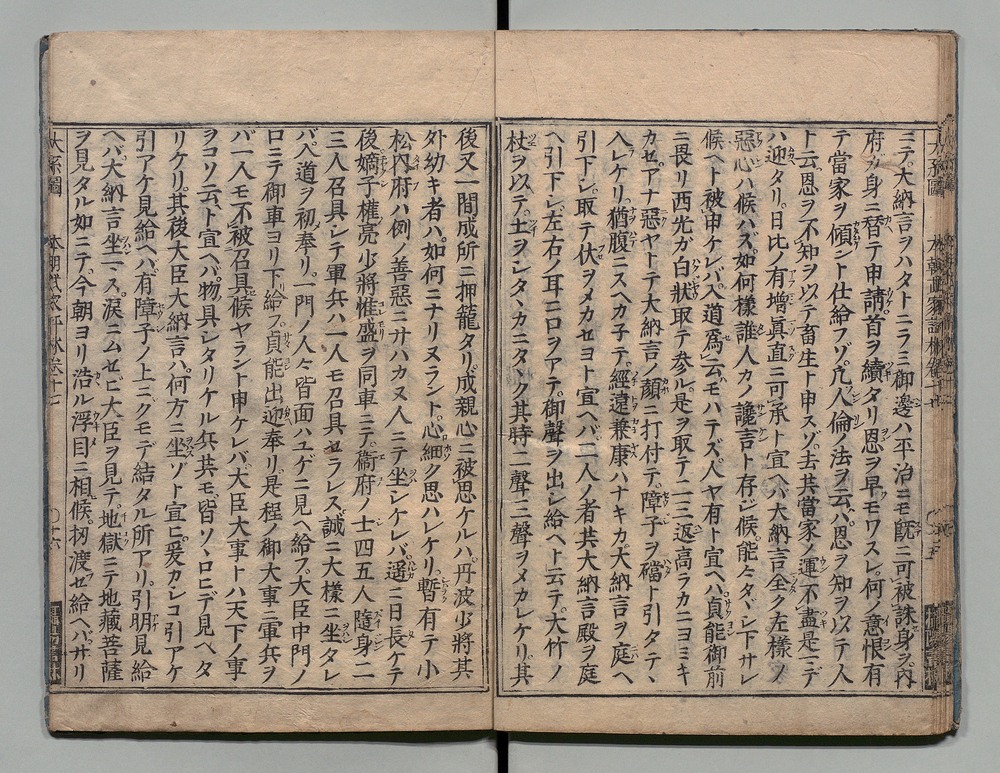 ミテ大納言ヲハタトニラミ御邊ハ平治ニモ既ニ可被誅身ヲ内
府ガ身ニ替テ申請首ヲ續タリ恩ヲ早モワスレ何ノ意恨有
テ當家ヲ傾ント仕給フゾ凢人倫ノ法ヲ云バ恩ヲ知ヲ以テ人
ト云恩ヲ不知ヲ以テ畜生ト申スゾ去共當家ノ運不盡是ニテ
ハ迎タリ日比ノ有増直ニ可承ト宣ヘバ大納言全ク左様ノ
惡心ハ候ハズ如何様誰人カノ讒言ト存シ候能々タヾシ下サレ
候ヘト被申ケレバ入道爲云モハテズ人ヤ有ト宣ヘハ貞能御前
ニ畏リ西光ガ白狀取テ参ル是ヲ取テ二三返高ラカニヨミキ
カセアナ惡ヤトテ大納言ノ顔ニ打付テ障子ヲ礑ト引タテヽ
入レケリ猶腹ニスヘカ子テ經遠兼康ハナキカ大納言ヲ庭ヘ
引下シ取テ伏ヲメカセヨト宣ヘバ二人ノ者共大納言殿ヲ庭
ヘ引下シ左右ノ耳ニ口ヲアテ御聲ヲ出シ給ヘト云テ大竹ノ
杖ヲ以テ土ヲシタヽカニタヽク其時二聲三聲ヲメカレケリ其
後又一間成所ニ押籠タリ成親心ニ被思ケルハ丹波少將其
外幼キ者ハ如何ニナリヌラント心細ク思ハレケリ暫有テ小
松内府ハ例ノ善惡ニサハカヌ人ニテ坐シケレバ遥ニ日長ケテ
後嫡子權亮少將惟盛ヲ同車ニテ衞府ノ士四五人隨身二
三人召具シテ軍兵ハ一人モ召具セラレス誠ニ大様ニ坐タレ
バ入道ヲ初奉リ一門ノ人々皆面ハユゲニ見ヘ給フ大臣中門ノ
口ニテ御車ヨリ下給フ貞能出迎奉リ是程ノ御大事ニ軍兵ヲ
バ一人モ不被召具候ヤラント申ケレバ大臣大事トハ天下ノ事
ヲコソ云ト宣ヘバ物具シタリケル兵共モ皆ソヽロニデ見ヘタ
リケリ其後大臣大納言ハ何方ニ坐ゾト宣ヒ爰カシコ引アケ
引アケ見給ヘハ有障子ノ上ニクモデ結タル所アリ引明見給
ヘバ大納言坐ス涙ニムセビ大臣ヲ見テ地獄ニテ地藏菩薩
ヲ見タル如ニテ今朝ヨリ浩ル浮目ニ相候扨渡セ給ヘハサリ
大系圖
本朝武家評林巻十七
十六